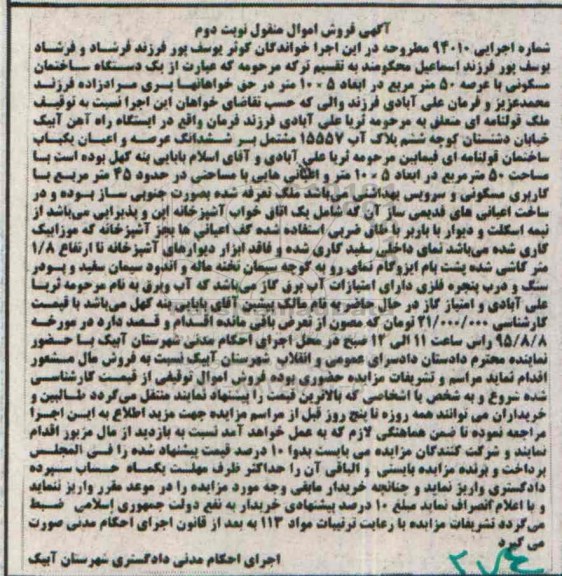 آگهی فروش اموال منقول نوبت دوم
شماره اجرایی ۹۴۰۱۰ مطروحه در این اجرا خواندگان کوثر یوسف پور فرزند فرشاد و فرشاد
یوسف پور فرزند اسماعیل محکومند به تقسیم ترکه مرحومه که عبارت از یک دستگاه ساختمان
مسکونی با عرصه ۵۰ متر مربع در ابعاد ۵ * ۱۰ متر در حق خواهانها پری مرادزاده فرزند
محمدعزیز و فرمان علی آبادی فرزند والی که حسب تقاضای خواهان این اجرا نسبت به توقیف
ملک قولنامه ای متعلق به مرحومه ثریا علی آبادی فرزند فرمان واقع در ایستگاه راه آهن آبیک
خیابان دشتستان کوچه ششم پلاک آب ۱۵۵۵۷ مشتمل بر ششدانگ عرصه و اعیان یکباب
ساختمان قولنامه ای فیمابین مرحومه ثریا علی آبادی و آقای اسلام بابایی پنه کهل بوده است با
مساحت ۵۰ مترمربع در ابعاد ۵ * ۱۰ متر و اعیانی هایی با مساحتی در حدود ۴۵ متر مربع با
کاربری مسکونی و سرویس بهداشتی می‌باشد ملک تعرفه شده بصورت جنوبی ساز بوده و در
ساخت اعیانی های قدیمی ساز آن که شامل یک اتاق خواب آشپزخانه اپن و پذیرایی می‌باشد از
نیمه اسکلت و دیوار با باربر با طاق ضربی استفاده شده کف اعیانی ها بجز آشپزخانه که موزاییک
کاری شده می‌باشد نمای داخلی سفید کاری شده و فاقد ابزار دیوارهای آشپزخانه تا ارتفاع ۱/۸
متر کاشی شده پشت بام ایزوگام نمای رو به کوچه سیمان تخته ماله و اندود سیمان سفید و پودر
سنگ و درب پنجره فلزی دارای امتیازات آب برق گاز می‌باشد که آب وبرق به نام مرحومه ثریا
علی آبادی و امتیاز گاز در حال حاضر به نام مالک پیشین آقای بابایی پنه کهل می‌باشد با قیمت
کارشناسی ۲۱/۰۰۰/۰۰۰ تومان که مصون از تعرض باقی مانده اقدام و قصد دارد در مورخه
۹۵/۸/۸ راس ساعت ۱۱ الی ۱۲ صبح در محل اجرای احکام مدنی شهرستان آبیک با حضور
نماینده محترم دادستان دادسرای عمومی و انقلاب شهرستان آبیک نسبت به فروش مال مسعور
اقدام نماید مراسم و تشریفات مزایده حضوری بوده فروش اموال توقیفی از قیمت کارشناسی
شده شروع و به شخص یا اشخاصی که بالاترین قیمت را پیشنهاد نمایند منتقل می‌گردد طالبین و
خریداران می توانند همه روزه تا پنج روز قبل از مراسم مزایده جهت مزید اطلاع به این اجرا
مراجعه نموده تا ضمن هماهنگی لازم که به عمل خواهد آمد نسبت به بازدید از مال مزبور اقدام
نمایند و شرکت کنندگان مزایده می بایست بدوا ۱۰ درصد قیمت پیشنهاد شده را فی المجلس
پرداخت و برنده مزایده بایستی و الباقی آن را حداکثر ظرف مهلت یکماه حساب سپرده
دادگستری واریز نماید و چنانچه خریدار مابقی وجه مورد مزایده را در موعد مقرر واریز ننماید
و یا اعلام انصراف نماید مبلغ ۱۰ درصد پیشنهادی خریدار به نفع دولت جمهوری اسلامی ضبط
می‌گردد تشریفات مزایده با رعایت ترتیبات مواد ۱۱۳ به بعد از قانون اجرای احکام مدنی صورت
می گیرد
اجرای احکام مدنی دادگستری شهرستان آبیک